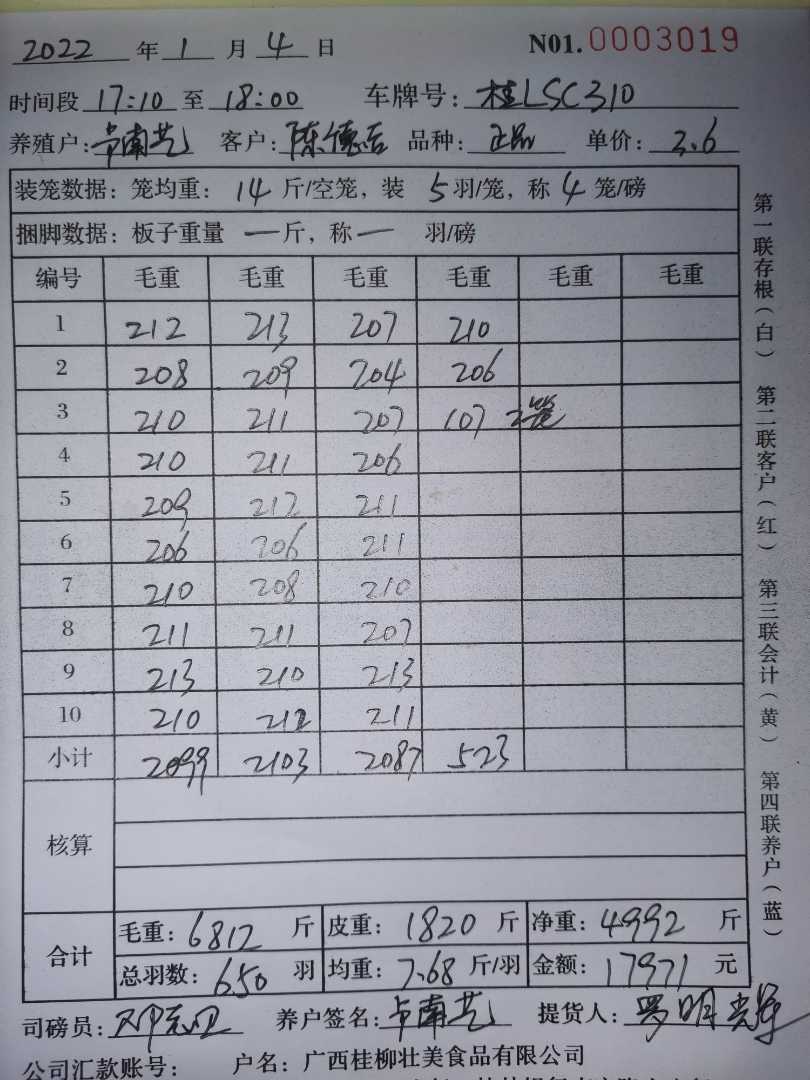 2022 年 1 月 4 日 N01. 0003019
时间段 17:10 至 18:00 车牌号: 桂LSC310
养殖户: 南艺 客户: 陈德 品种: 正品 单价: 3.6
装笼数据: 笼均重: 14 斤/空笼, 装 5 羽/笼, 称 4 笼/磅
捆脚数据: 板子重量 一 斤, 称 一 羽/磅
编号 毛重 毛重 毛重 毛重 毛重 毛重
1 212 213 207 210
2 208 209 204 206
3 210 211 207 107 2笼
4 210 211 206
5 209 212 211
6 206 206 211
7 210 208 210
8 211 211 207
9 213 210 213
10 210 212 211
小计 2099 2103 2087 523
核算
合计 毛重: 6812 斤 皮重: 1820 斤 净重: 4992 斤
总羽数: 650 羽 均重: 7.68 斤/羽 金额: 17971 元
司磅员: 养户签名: 南艺 提货人: 罗明
公司汇款账号: 户名: 广西桂柳壮美食品有限公司
第一联存根(白) 第二联客户(红) 第三联会计(黄) 第四联养户(蓝)